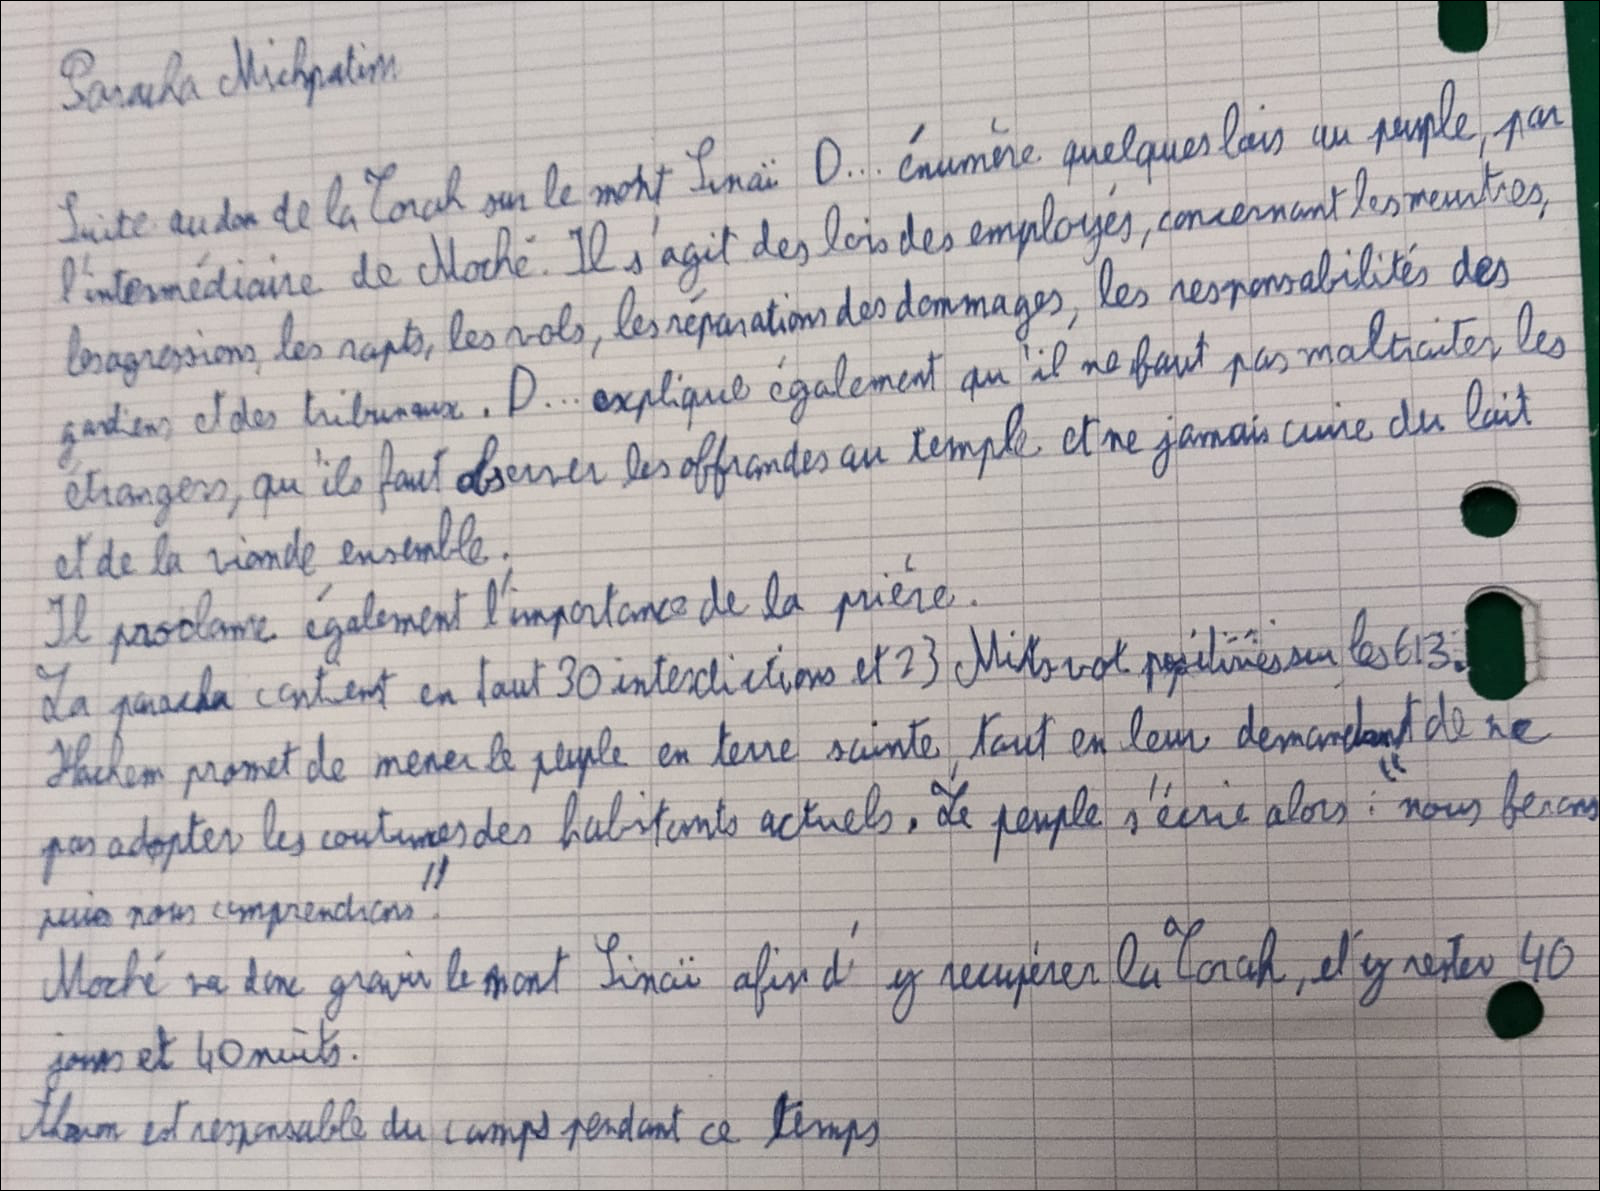 Paracha Michpatim
Suite au don de la Torah sur le mont Sinaï D... énumère quelques lois au peuple, par
l'intermédiaire de Moché. Il s'agit des lois des employés, concernant les meurtres,
les agressions, les rapts, les vols, les réparations des dommages, les responsabilités des
gardiens et des tribunaux. D... explique également qu'il ne faut pas maltraiter les
étrangers, qu'ils faut observer les offrandes au temple et ne jamais cuire du lait
et de la viande ensemble.
Il proclame également l'importance de la prière.
La paracha contient en tout 30 interdictions et 23 Mitsvot positives sur les 613.
Hachem promet de mener le peuple en terre sainte, tout en leur demandant de ne
pas adopter les coutumes des habitants actuels. Le peuple s'écrie alors : "nous ferons
puis nous comprendrons"!
Moché va donc gravir le mont Sinaï afin d'y recupérer la Torah, et y rester 40
jours et 40 nuits.
Aharon est responsable du camps pendant ce temps